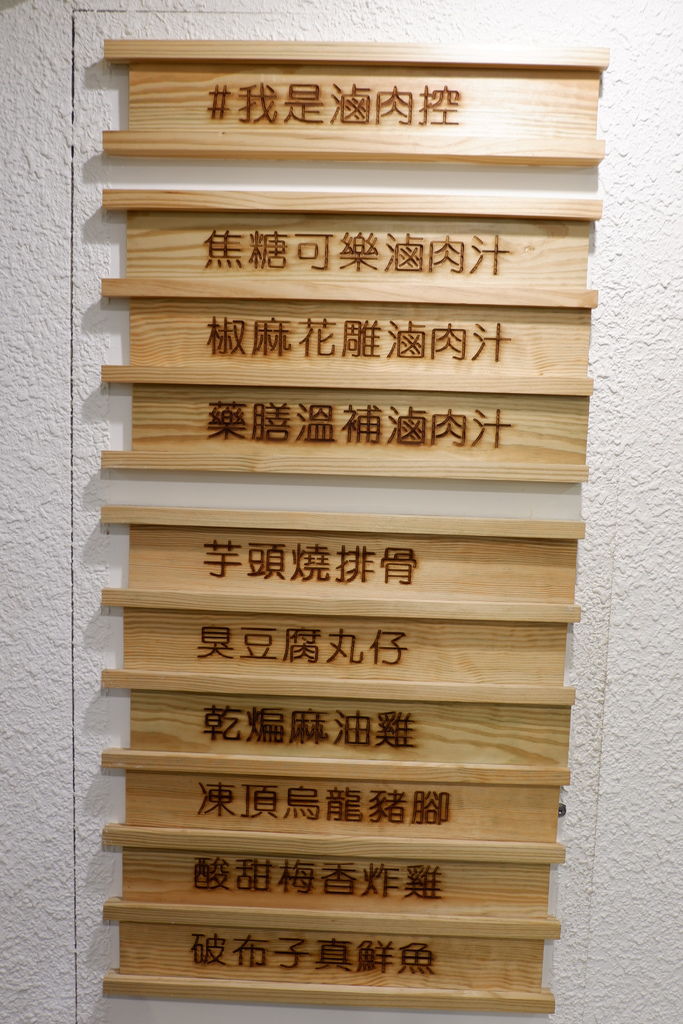 #我是滷肉控
焦糖可樂滷肉汁
椒麻花雕滷肉汁
藥膳溫補滷肉汁
芋頭燒排骨
臭豆腐丸仔
乾煸麻油雞
凍頂烏龍豬腳
酸甜梅香炸雞
破布子真鮮魚